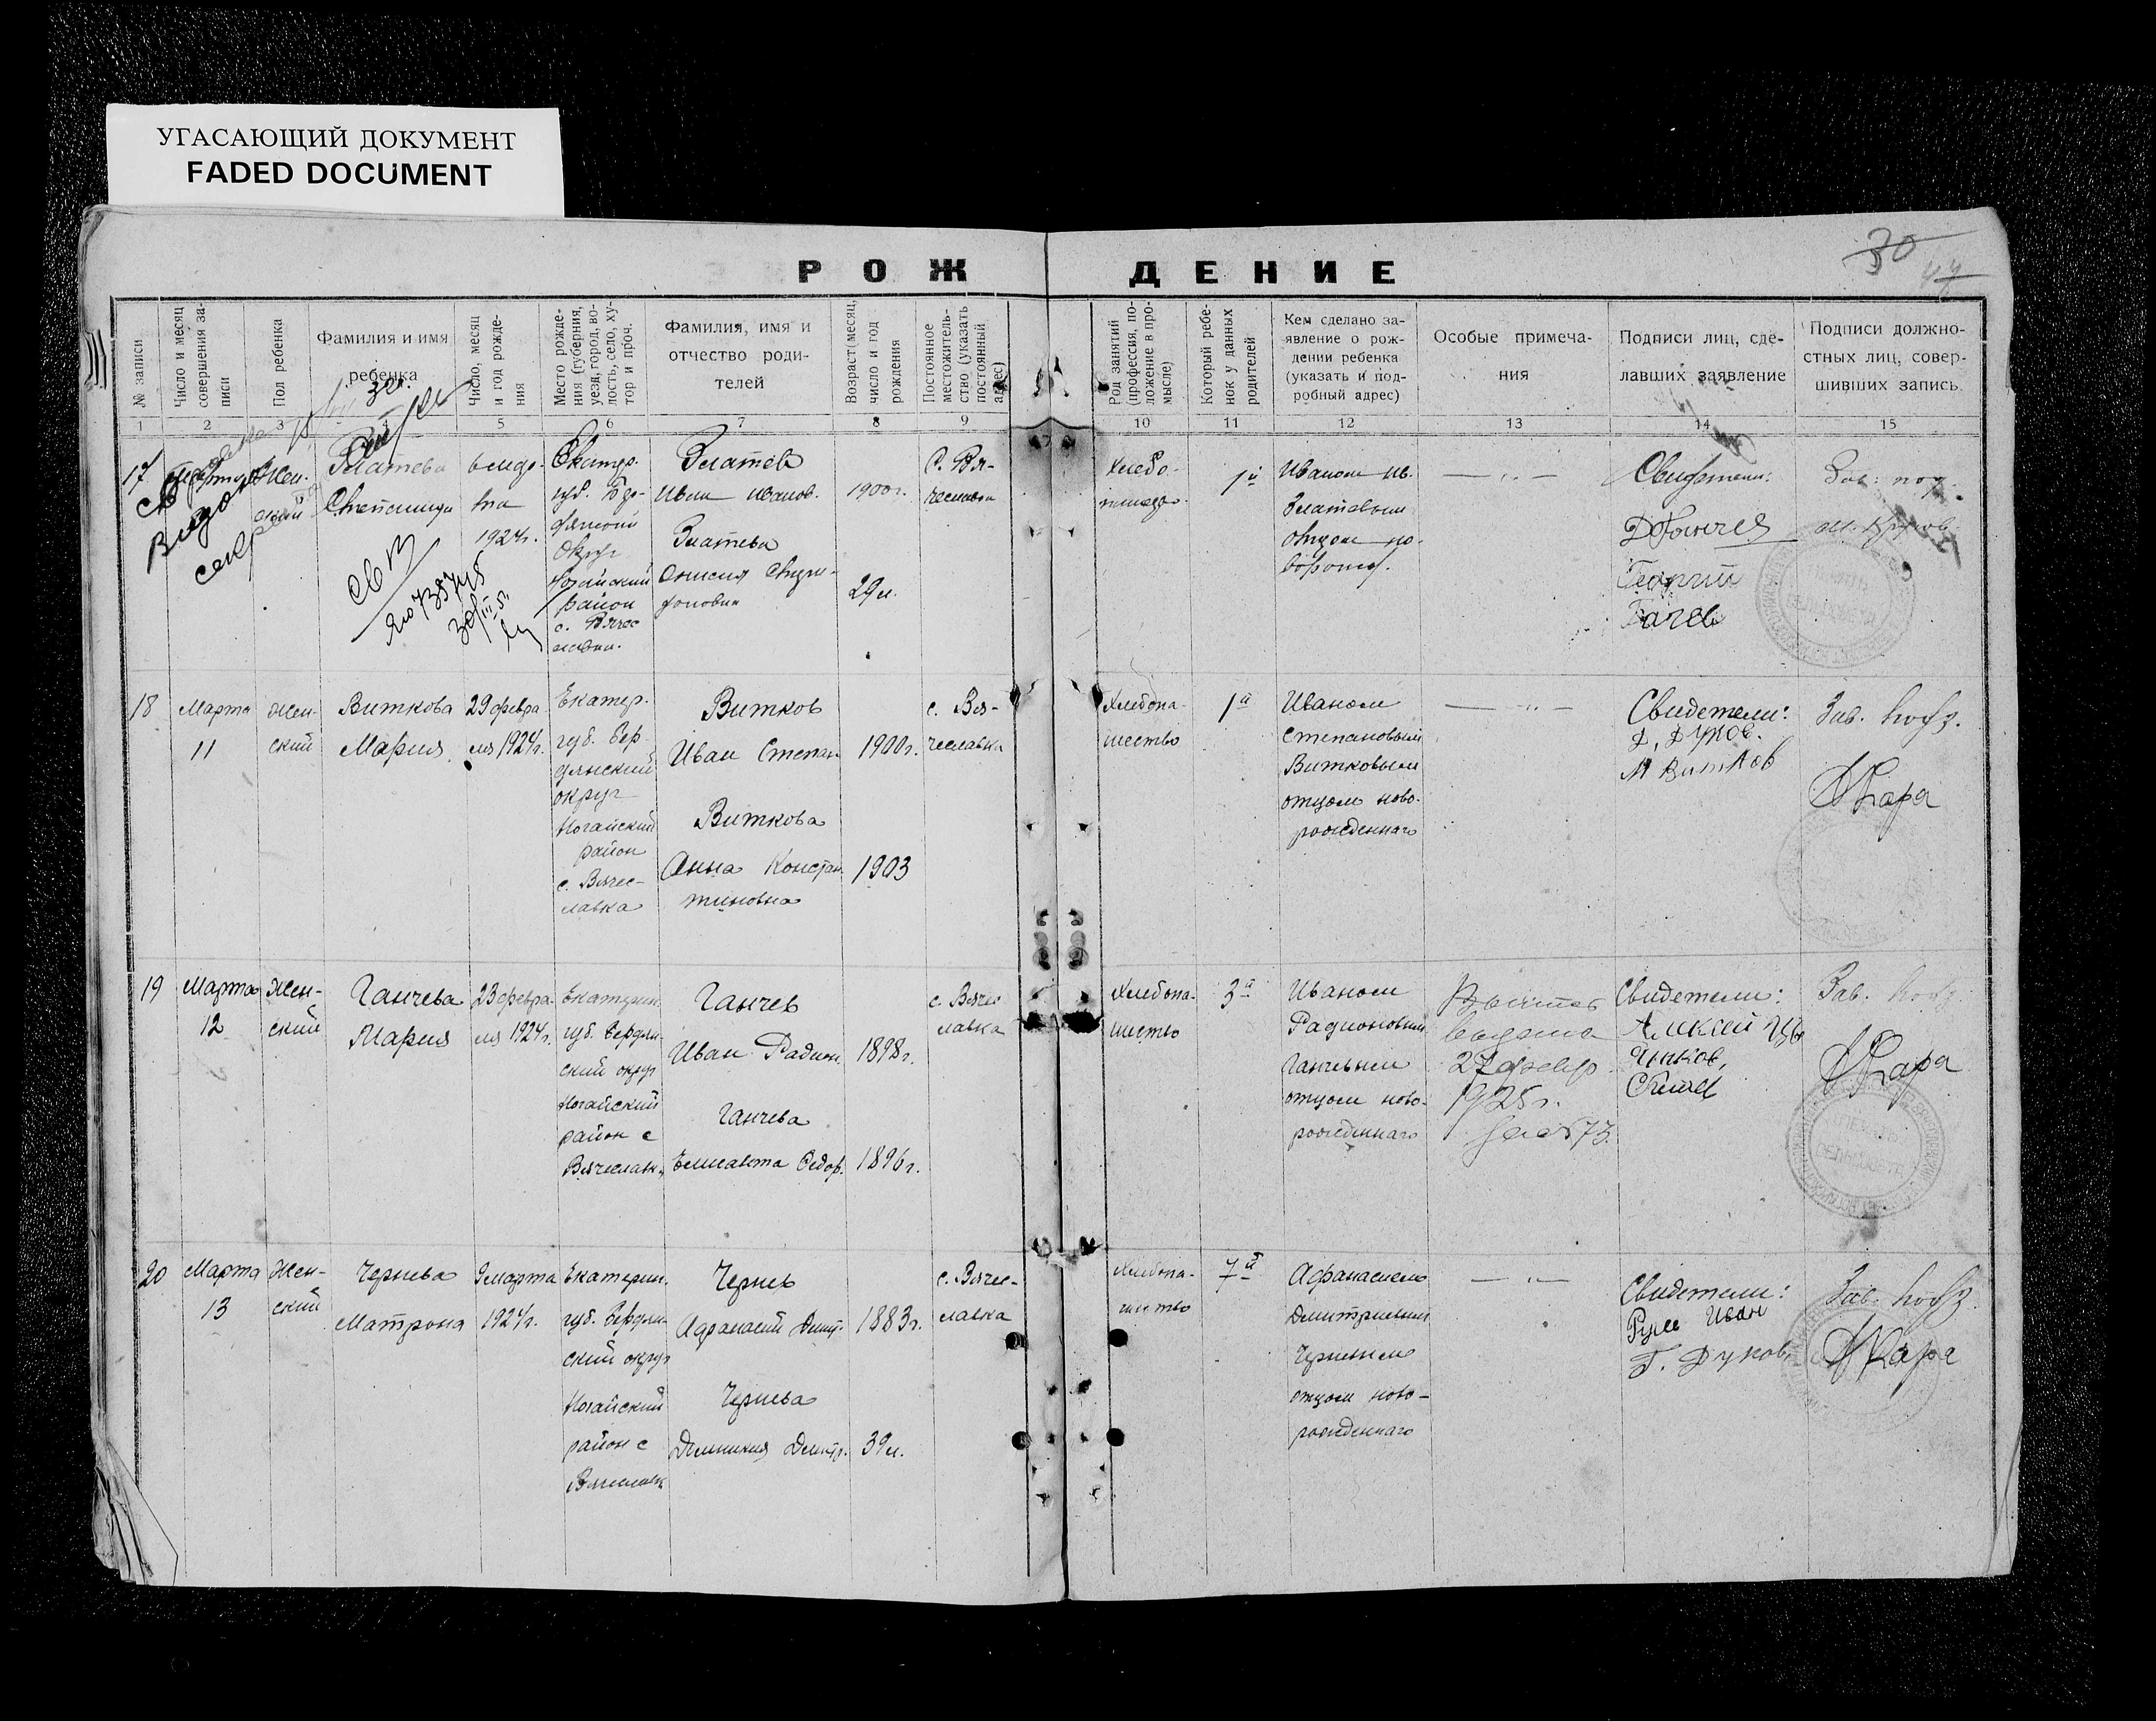 УГАСАЮЩИЙ ДОКУМЕНТ
FADED DOCUMENT
30
РОЖДЕНИЕ
№ записи
Число и месяц
совершения за-
писи
Пол ребенка
Фамилия и имя
ребенка
Число, месяц
и год рожде-
ния
Место рожде-
ния (губерния,
уезд, город, во-
лость, село, ху-
тор и проч.
Фамилия, имя и
отчество роди-
телей
Возраст (месяц,
число и год
рождения
Постоянное
местожитель-
ство (указать
постоянный
адрес)
Род занятий
(профессия, по-
ложение в про-
мысле)
Который ребе-
нок у данных
родителей
Кем сделано за-
явление о рож-
дении ребенка
(указать и под-
робный адрес)
Особые примеча-
ния
Подписи лиц, сде-
лавших заявление
Подписи должно-
стных лиц, совер-
шивших запись
1 2 3 5 6 7 8 9 10 11 12 13 14 15
17
Жен-
ский
Златева
1924г.
Екатер.
губ. Бер-
округ
Ногайский
район
с. Вячес
лавка.
Златев
Иван Иванов.
Златева
1900г.
29л.
с. Вя-
чеславка
Хлебо-
1й
Иваном Ив.
Златевым
отцом но-
Свидетели:
Георгий
Гачев
Зав.
18
Марта
11
Жен-
ский
Виткова
Мария
29 февра
ля 1924г.
Екатер.
губ. Бер-
дянский
округ
Ногайский
район
с. Вячес-
лавка
Витков
Иван Степан.
Виткова
Анна Констан
тиновна
1900г.
1903
с. Вя-
чеславка
Хлебопа-
шество
1й
Иваном
Степановым
Витковым
отцом ново-
рожденнаго
Свидетели:
Д. Дуков.
М Витков
Зав.
Кара
19
Марта
12
Жен-
ский
Ганчева
Мария
23 февра-
ля 1924г.
Екатерин.
губ. Бердян-
ский округ
Ногайский
район с
Вячеславк.
Ганчев
Иван Радион.
Ганчева
Елисавета Федор.
1898г.
1896г.
с. Вячес
лавка
Хлебопа-
шество
3й
Иваном
Радионовым
Ганчевым
отцом ново-
рожденнаго
выдана
27 февр.
1925г.
73.
Свидетели:
Алексей
Зав.
Кара
20
Марта
13
Жен-
ский
Чернева
Матрона
9 марта
1924г.
Екатерин.
губ. Бердян-
ский округ
Ногайский
район с
Вячеславк
Чернев
Афанасий Дмит.
Чернева
Домникия Дмитр.
1883г.
39л.
с. Вячес-
лавка
Хлебопа-
шество
7й
Афанасием
Дмитриевым
Черневым
отцом ново-
рожденнаго
Свидетели:
Иван
Г. Дуков
Зав.
Кара